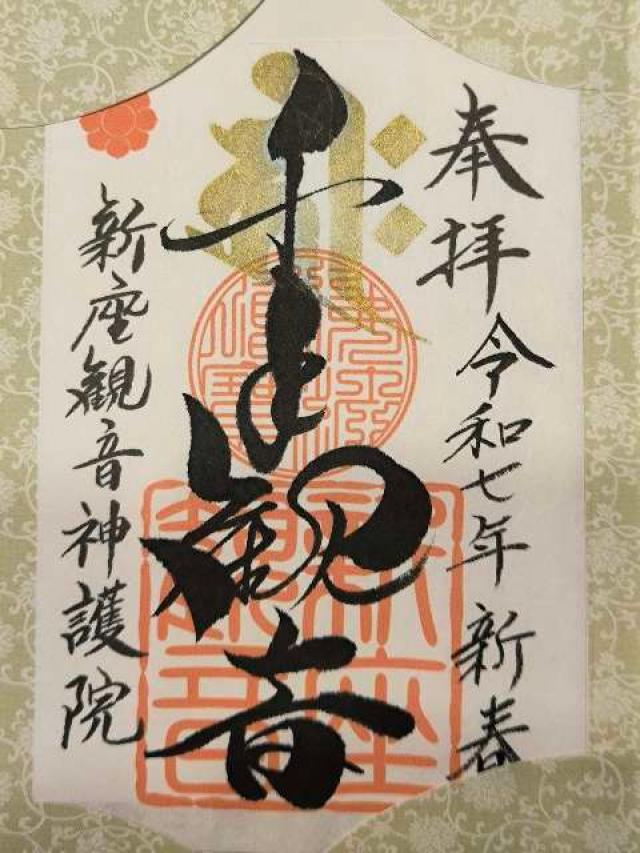 奉拝 令和七年 新春
千手観音
新座観音神護院
新座観音